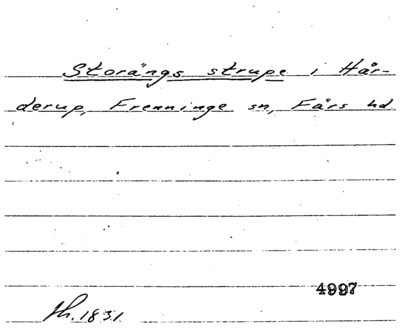 Storängs strupe i Hår-
derup, Frenninge sn, Färs hd
4997
th. 1831